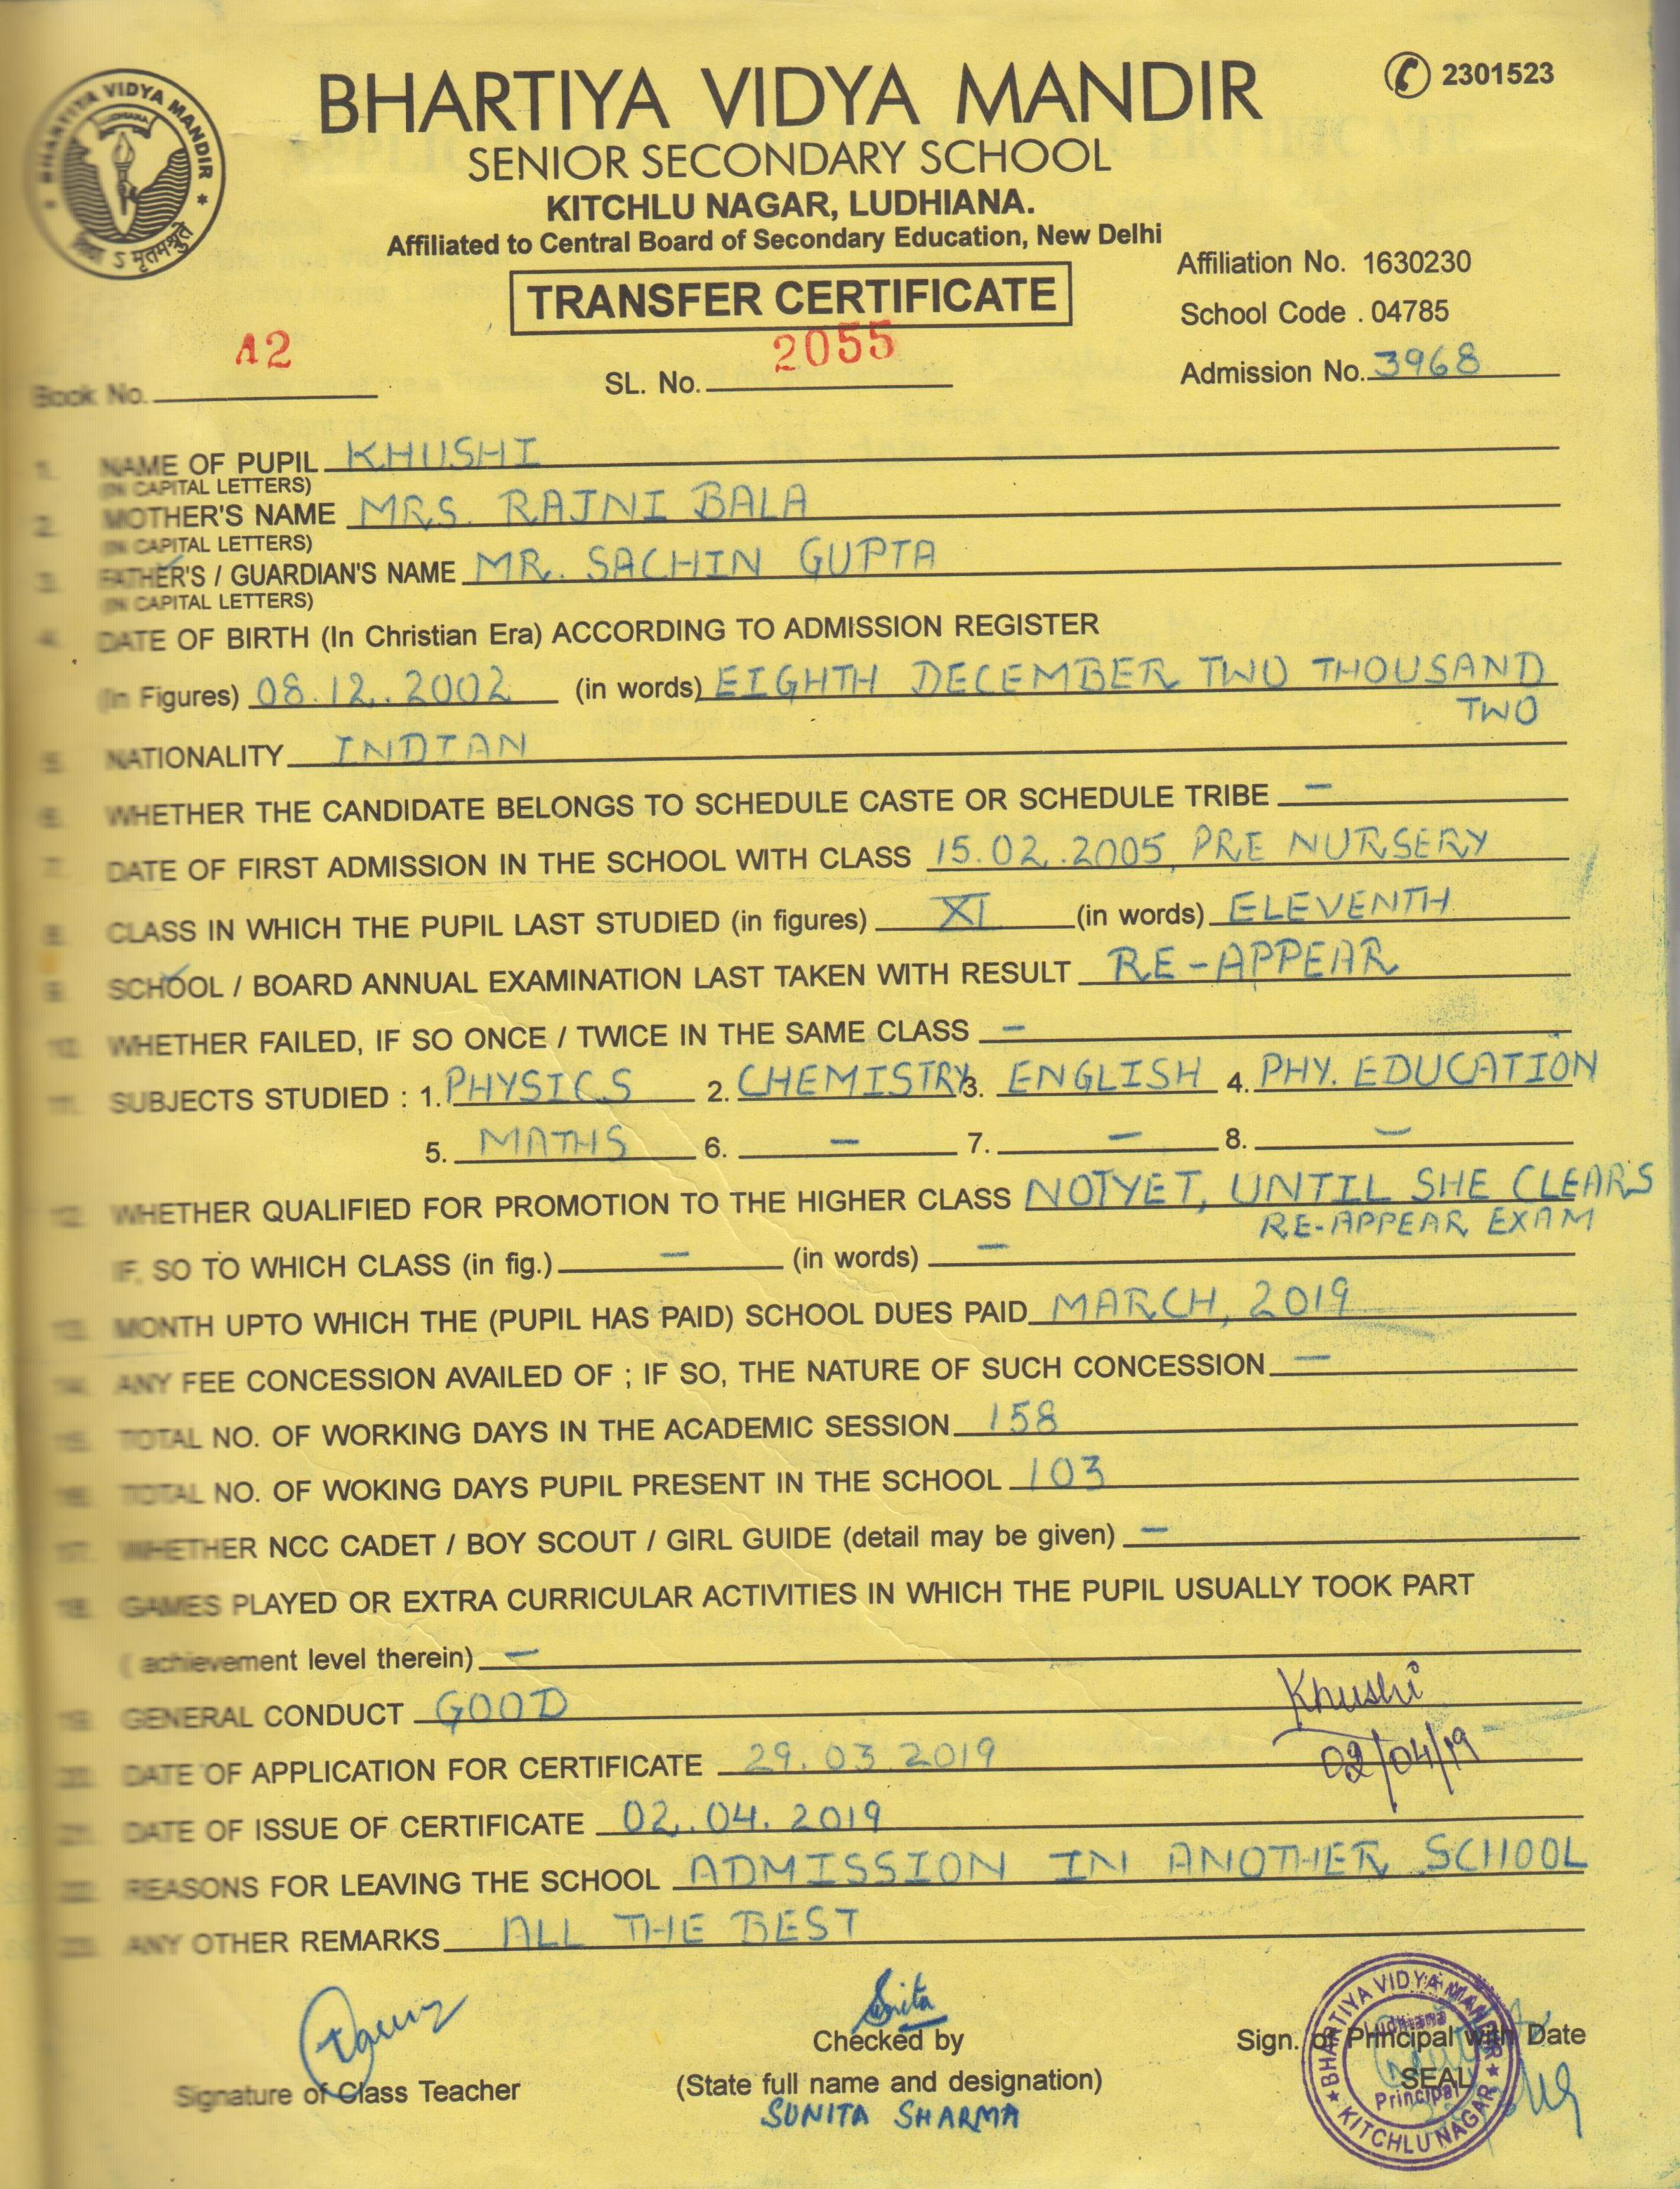 BHARTIYA VIDYA MANDIR
2301523
SENIOR SECONDARY SCHOOL
KITCHLU NAGAR, LUDHIANA.
Affiliated to Central Board of Secondary Education, New Delhi
BHARTIYA VIDYA MANDIR
LUDHIANA
Affiliation No. 1630230
TRANSFER CERTIFICATE
School Code . 04785
Book No. A2 SL. No. 2055 Admission No. 3968
1. NAME OF PUPIL KHUSHI
(IN CAPITAL LETTERS)
2. MOTHER'S NAME MRS. RAJNI BALA
(IN CAPITAL LETTERS)
3. FATHER'S / GUARDIAN'S NAME MR. SACHIN GUPTA
(IN CAPITAL LETTERS)
4. DATE OF BIRTH (In Christian Era) ACCORDING TO ADMISSION REGISTER
(In Figures) 08.12.2002 (in words) EIGHTH DECEMBER TWO THOUSAND
TWO
5. NATIONALITY INDIAN
6. WHETHER THE CANDIDATE BELONGS TO SCHEDULE CASTE OR SCHEDULE TRIBE –
7. DATE OF FIRST ADMISSION IN THE SCHOOL WITH CLASS 15.02.2005, PRE NURSERY
8. CLASS IN WHICH THE PUPIL LAST STUDIED (in figures) XI (in words) ELEVENTH
9. SCHOOL / BOARD ANNUAL EXAMINATION LAST TAKEN WITH RESULT RE-APPEAR
10. WHETHER FAILED, IF SO ONCE / TWICE IN THE SAME CLASS –
11. SUBJECTS STUDIED : 1. PHYSICS 2. CHEMISTRY 3. ENGLISH 4. PHY. EDUCATION
5. MATHS 6. – 7. – 8. –
12. WHETHER QUALIFIED FOR PROMOTION TO THE HIGHER CLASS NOT YET, UNTIL SHE CLEARS
RE-APPEAR EXAM
IF, SO TO WHICH CLASS (in fig.) – (in words) –
13. MONTH UPTO WHICH THE (PUPIL HAS PAID) SCHOOL DUES PAID MARCH, 2019
14. ANY FEE CONCESSION AVAILED OF ; IF SO, THE NATURE OF SUCH CONCESSION –
15. TOTAL NO. OF WORKING DAYS IN THE ACADEMIC SESSION 158
16. TOTAL NO. OF WOKING DAYS PUPIL PRESENT IN THE SCHOOL 103
17. WHETHER NCC CADET / BOY SCOUT / GIRL GUIDE (detail may be given) –
18. GAMES PLAYED OR EXTRA CURRICULAR ACTIVITIES IN WHICH THE PUPIL USUALLY TOOK PART
( achievement level therein) –
19. GENERAL CONDUCT GOOD
Khushi
02/04/19
20. DATE OF APPLICATION FOR CERTIFICATE 29.03.2019
21. DATE OF ISSUE OF CERTIFICATE 02.04.2019
22. REASONS FOR LEAVING THE SCHOOL ADMISSION IN ANOTHER SCHOOL
23. ANY OTHER REMARKS ALL THE BEST
Sunita
Signature of Class Teacher
Checked by
(State full name and designation)
SUNITA SHARMA
Sign. of Principal with Date
SEAL
BHARTIYA VIDYA MANDIR
Ludhiana
Principal
KITCHLU NAGAR